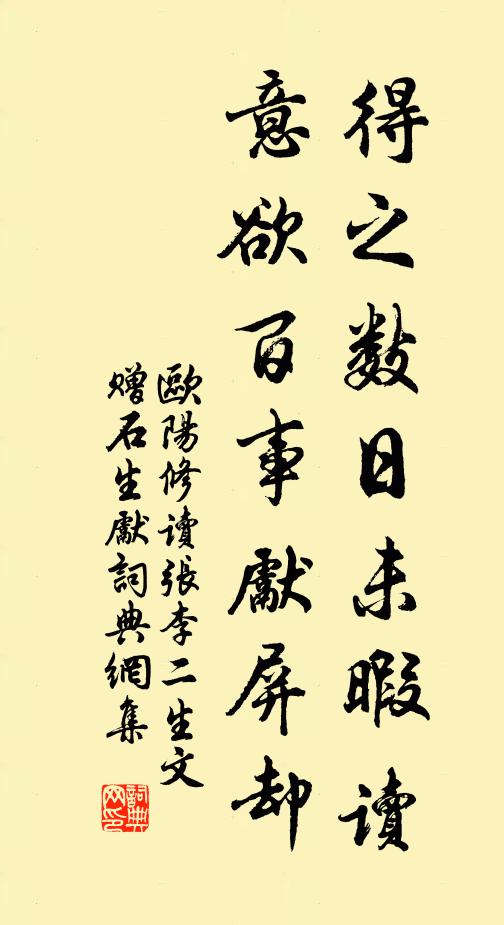 得之數日未暇讀
意欲百事獻屏却
歐陽修讀張李二生文
贈石生獻詞典網集
詞典
网印